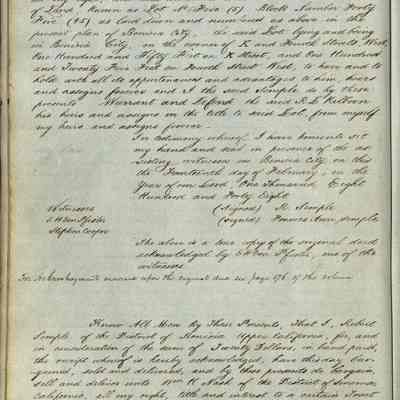 of Land known as Lot No Five (5) Block Number Forty
Five (45) as laid down and numbered as above in the
present plan of Benicia City, the said Lot lying and being
in Benicia City, on the corner of K and Fourth Streets West,
One Hundred and Fifty Feet on K Street, and One Hundred
and Twenty Five Feet on Fourth Street West, to have and to
hold with all its appurtenances and advantages to him, heirs
and assigns forever and I the said Semple do by these
presents Warrant and Defend the said R. L. Kilburn
his heirs and assigns in the title to said Lot, from myself
my heirs and assigns forever.
In testimony whereof I have hereunto set
my hand and seal in presence of the as-
sisting witnesses in Benicia City on this
the Fourteenth day of February, in the
Year of our Lord One Thousand Eight
Hundred and Forty Eight
Witnesses (Signed) R. Semple
E. H. Von Pfister (Signed) Frances Ann Semple
Stephen Cooper
The above is a true copy of the original deed
acknowledged by E H Von Pfister, one of the
witnesses
For Acknowledgment endorsed upon the original deed see page 176 of this volume
Know All Men By These Presents, That I, Robert
Semple of the District of Sonoma Upper California, for, and
in consideration of the sum of Twenty Dollars, in hand paid,
the receipt whereof is hereby acknowledged, have this day bar-
gained, sold and delivered, and by these presents do bargain,
sell and deliver unto Wm H Nash of the District of Sonoma
California, all my right, title and interest to a certain Tract